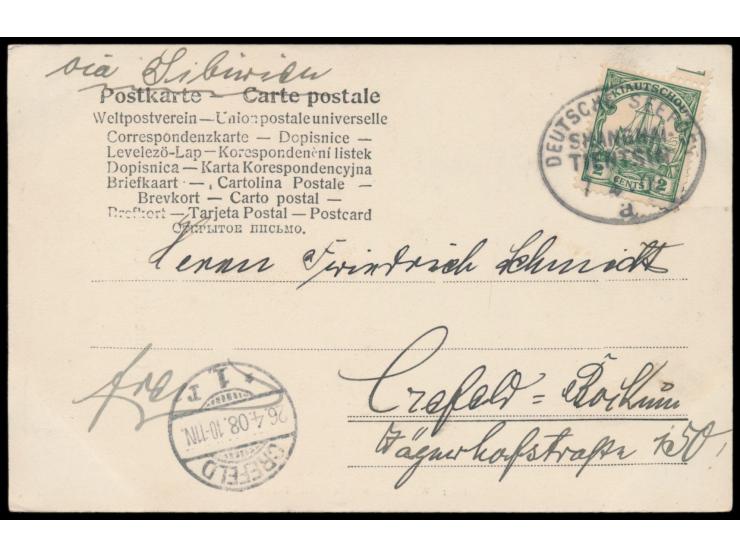 via Sibirien
Postkarte — Carte postale
Weltpostverein — Union postale universelle
Correspondenzkarte — Dopisnice —
Levelező-Lap — Korespondenční listek
Dopisnica — Karta Korespondencyjna
Briefkaart — Cartolina Postale —
Brevkort — Carto postal —
Brefkort — Tarjeta Postal — Postcard
Открытое письмо.
KIAUTSCHOU
2 CENTS 2
DEUTSCHE SEEPOST
SHANGHAI-
TIENTSIN
a
Herrn Friedrich Schmidt
Crefeld = Bockum
Jägerhofstraße 150,
CREFELD
26.4.08.10-11N.
* 1 r